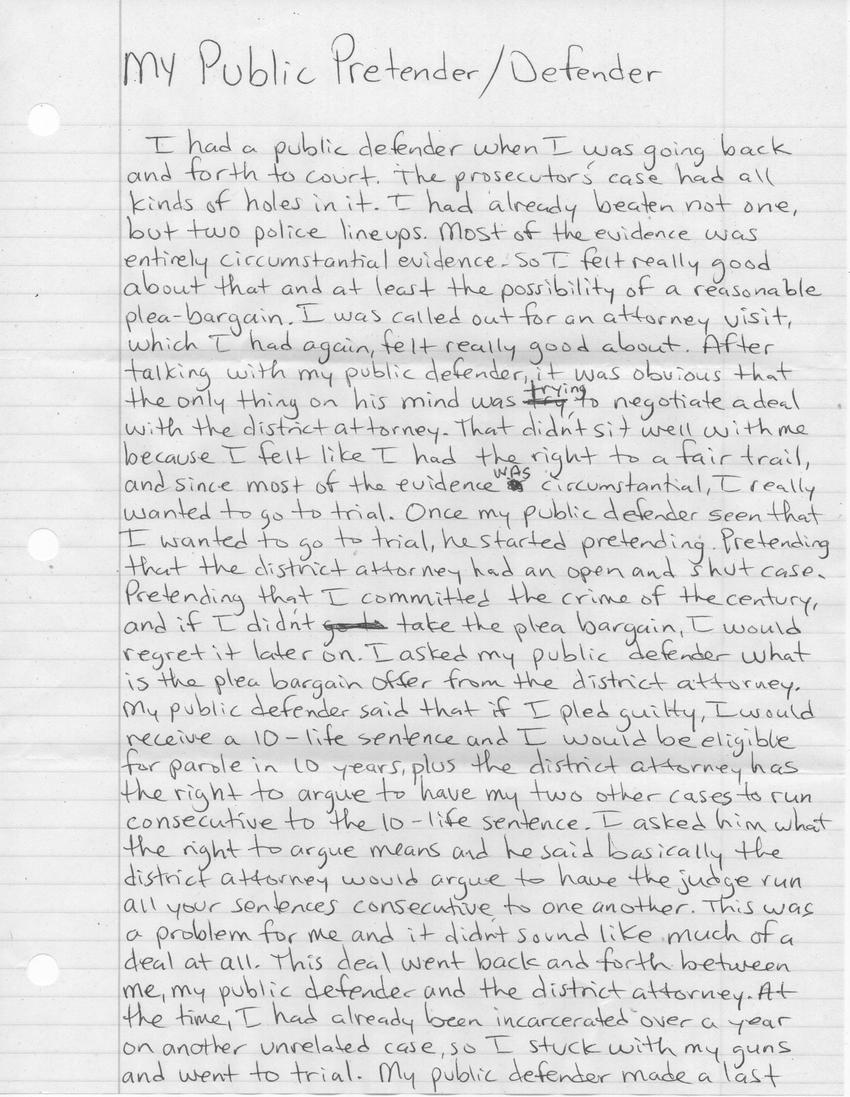 My Public Pretender/Defender
I had a public defender when I was going back
and forth to court. The prosecutor's case had all
kinds of holes in it. I had already beaten not one,
but two police lineups. Most of the evidence was
entirely circumstantial evidence. So I felt really good
about that and at least the possibility of a reasonable
plea-bargain. I was called out for an attorney visit,
which I had again, felt really good about. After
talking with my public defender, it was obvious that
the only thing on his mind was trying to negotiate a deal
with the district attorney. That didn't sit well with me
because I felt like I had the right to a fair trail,
and since most of the evidence was circumstantial, I really
wanted to go to trial. Once my public defender seen that
I wanted to go to trial, he started pretending. Pretending
that the district attorney had an open and shut case.
Pretending that I committed the crime of the century,
and if I didn't take the plea bargain, I would
regret it later on. I asked my public defender what
is the plea bargain offer from the district attorney.
My public defender said that if I pled guilty, I would
receive a 10-life sentence and I would be eligible
for parole in 10 years, plus the district attorney has
the right to argue to have my two other cases to run
consecutive to the 10-life sentence. I asked him what
the right to argue means and he said basically the
district attorney would argue to have the judge run
all your sentences consecutive to one another. This was
a problem for me and it didn't sound like much of a
deal at all. This deal went back and forth between
me, my public defender and the district attorney. At
the time, I had already been incarcerated over a year
on another unrelated case, so I stuck with my guns
and went to trial. My public defender made a last